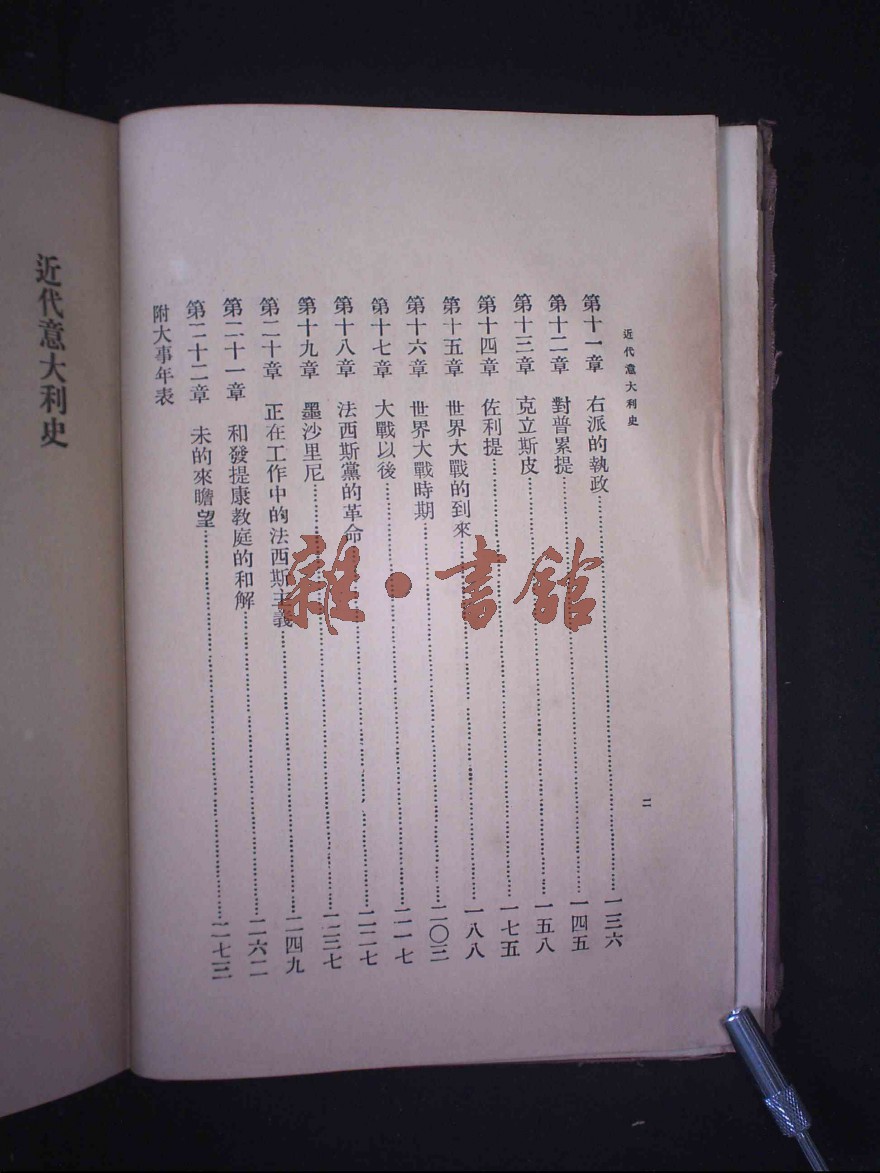 近代意大利史
二
第十一章 右派的執政……一三六
第十二章 對普累提……一四五
第十三章 克立斯皮……一五八
第十四章 佐利提……一七五
第十五章 世界大戰的到來……一八八
第十六章 世界大戰時期……二〇三
第十七章 大戰以後……二一七
第十八章 法西斯黨的革命……二二七
第十九章 墨沙里尼……二三七
第二十章 正在工作中的法西斯主義……二四九
第二十一章 和發提康教庭的和解……二六二
第二十二章 未的來瞻望……二七三
附大事年表
近代意大利史
雜·書館